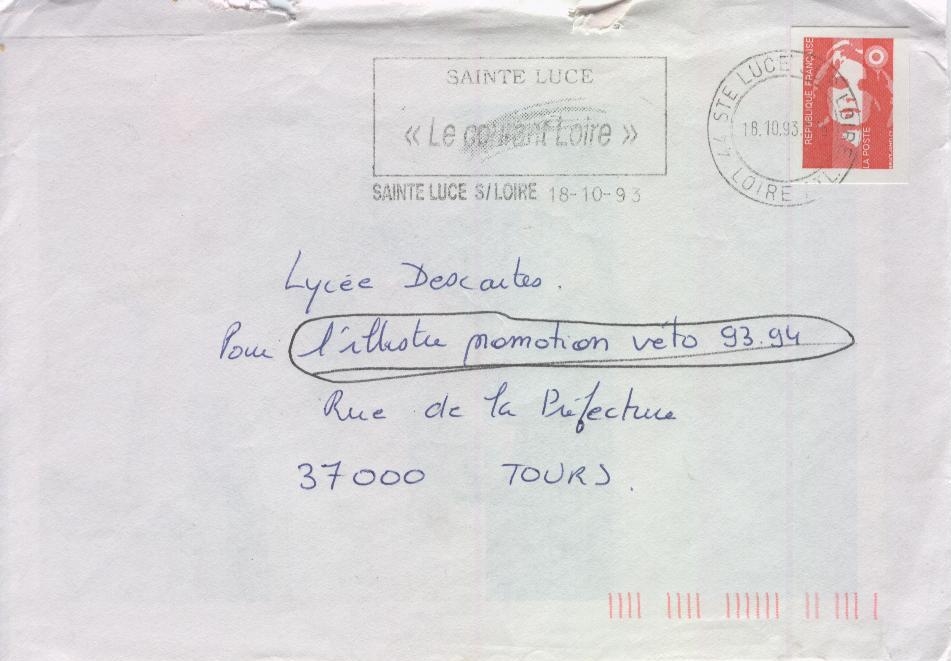 SAINTE LUCE
« Le courant Loire »
SAINTE LUCE S/LOIRE 18-10-93
44 STE LUCE
18.10.93
LOIRE ATL.
RÉPUBLIQUE FRANÇAISE
LA POSTE
Lycée Descartes.
Pour l'illustre promotion véto 93.94
Rue de la Préfecture
37000 TOURS.